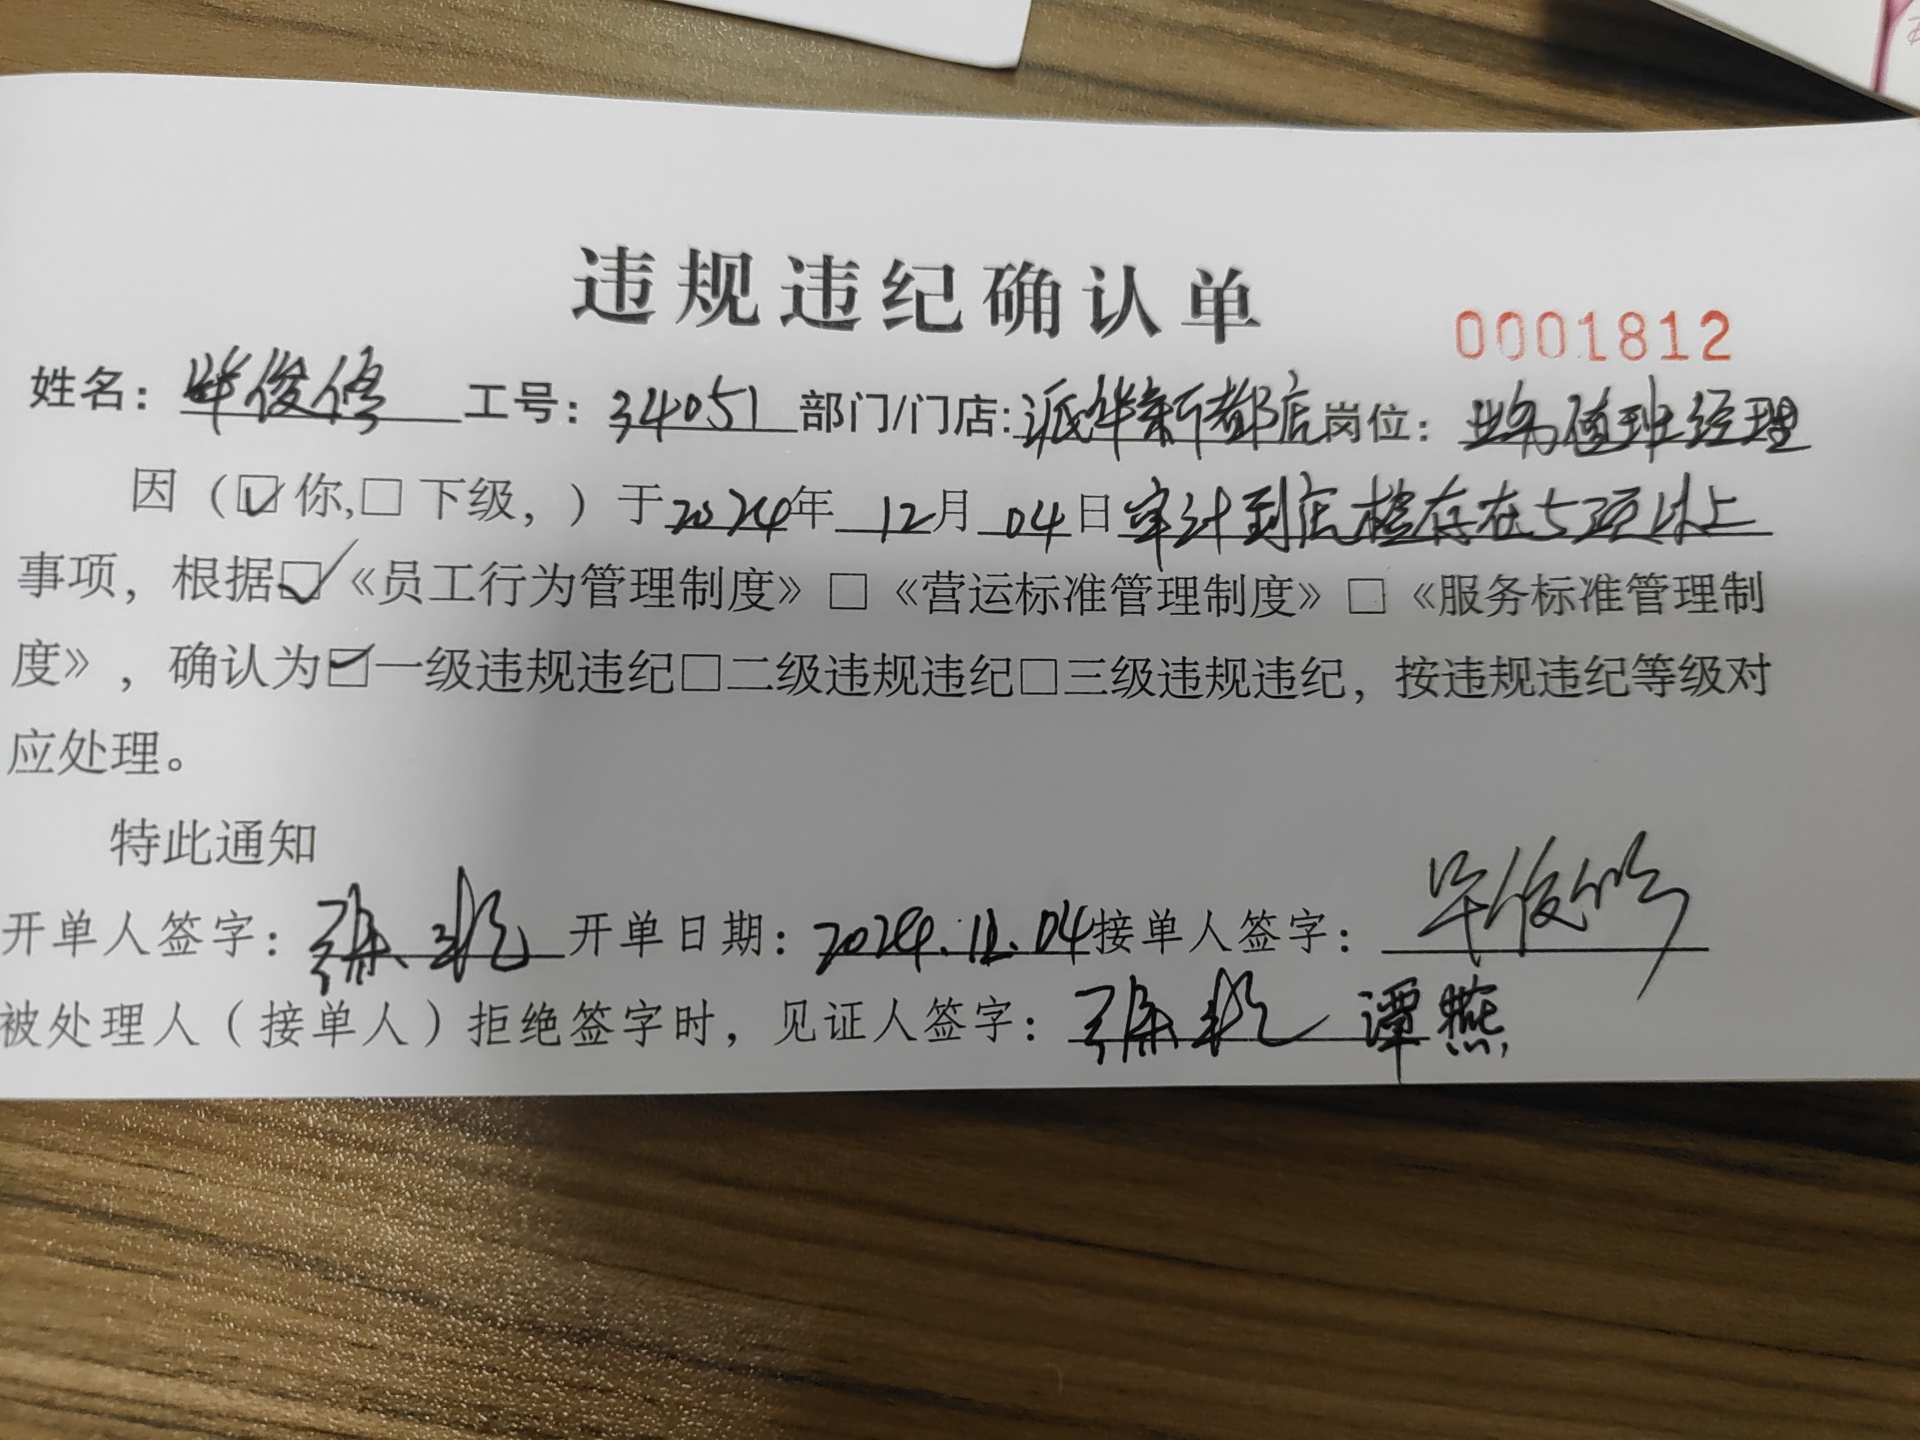 违规违纪确认单
0001812
姓名：毕俊修 工号：34051 部门/门店：派华新都店 岗位：业务值班经理
因（☑你,□下级，）于2024年 12月 04日审计到店检存在5项以上
事项，根据☑《员工行为管理制度》□《营运标准管理制度》□《服务标准管理制
度》，确认为☑一级违规违纪□二级违规违纪□三级违规违纪，按违规违纪等级对
应处理。
特此通知
开单人签字：张 开单日期：2024.12.04 接单人签字：毕俊修
被处理人（接单人）拒绝签字时，见证人签字：张 谭燕